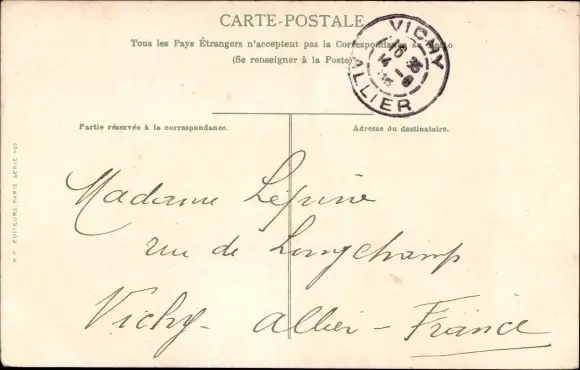 CARTE-POSTALE
Tous les Pays Étrangers n'acceptent pas la Correspondance au Recto
(Se renseigner à la Poste)
VICHY
16 35
14 - 8
ALLIER
Partie réservée à la correspondance.
Adresse du destinataire.
H. P. EDITEURS. PARIS SERIE
Madame Lépine
rue de Longchamp
Vichy - Allier - France